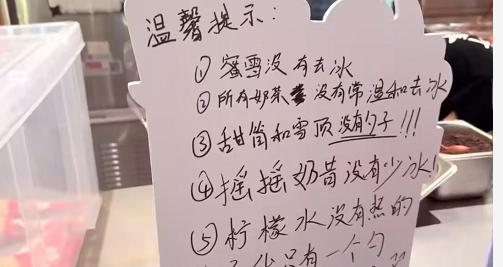 温馨提示:
①蜜雪没有去冰
②所有奶茶没有常温和去冰
③甜筒和雪顶没有勺子!!!
④摇摇奶昔没有少冰!
⑤柠檬水没有热的
只有一个勺